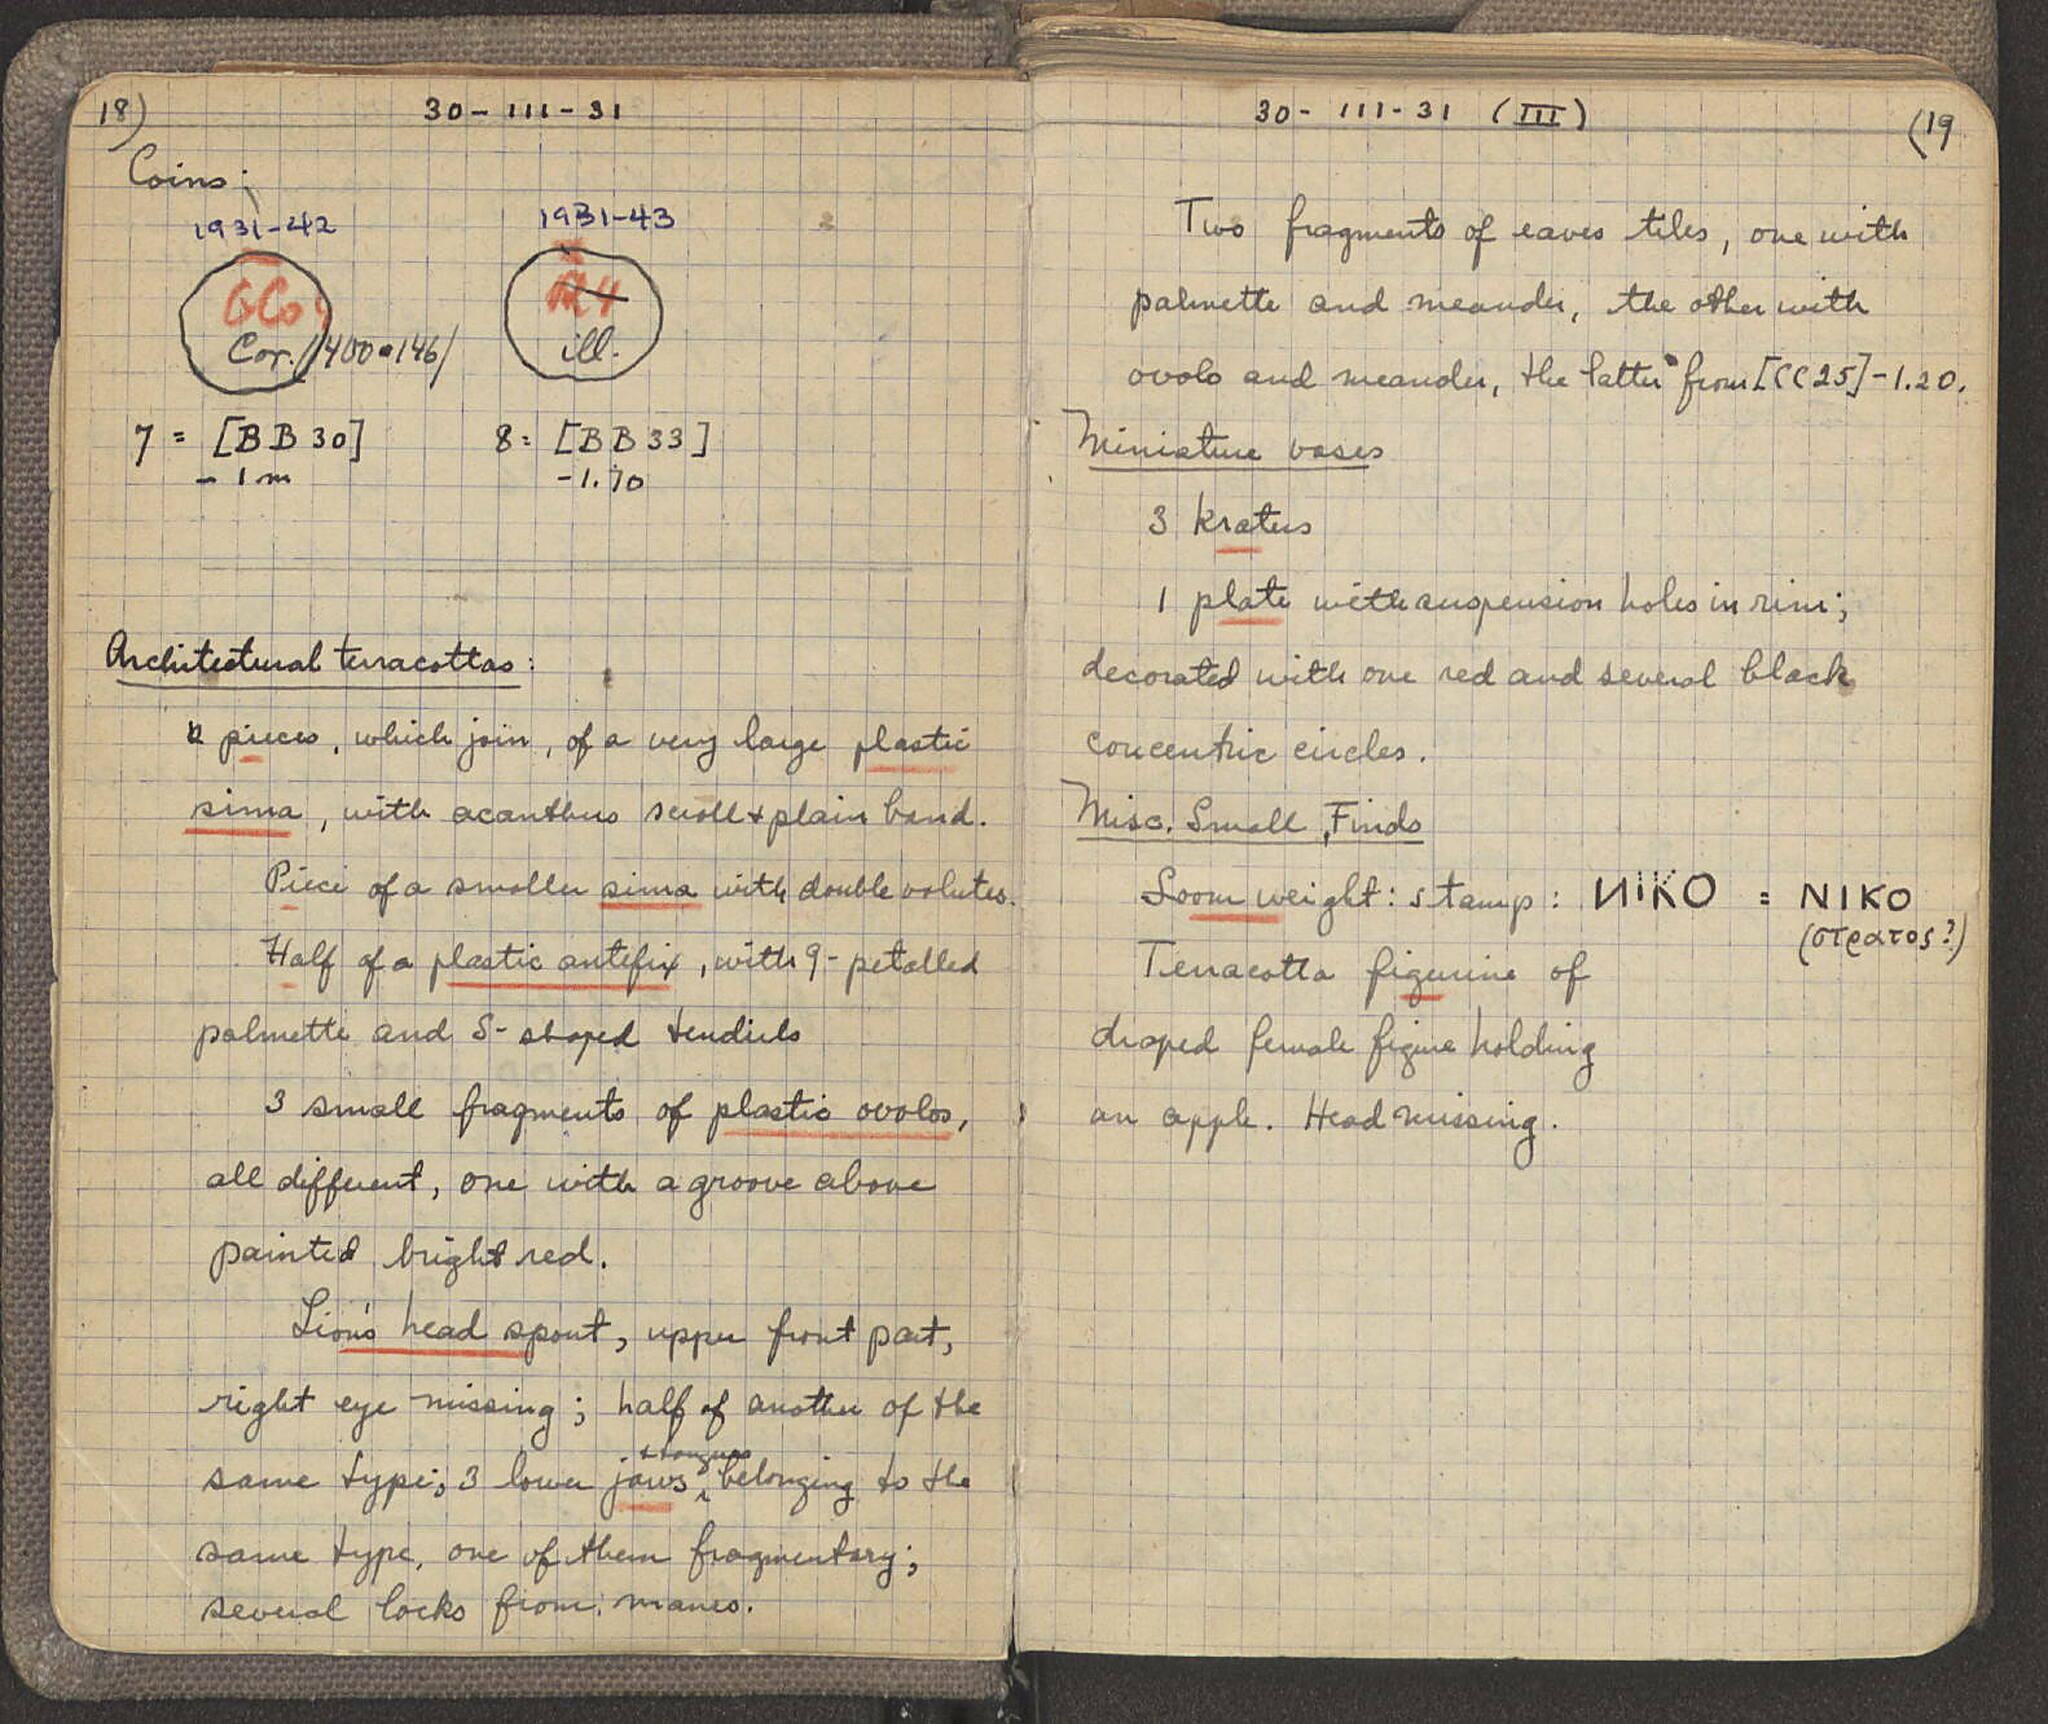 18)
30-III-31
Coins:
1931-42
1931-43
GCo
Cor. /400-146/
ill.
7 = [BB30]
- 1m
8 = [BB33]
-1.70
Architectural terracottas:
2 pieces, which join, of a very large plastic
sima, with acanthus scroll + plain band.
Piece of a smaller sima with double volutes.
Half of a plastic antefix, with 9-petalled
palmette and S-shaped tendrils
3 small fragments of plastic ovolos,
all different, one with a groove above
painted bright red.
Lion's head spout, upper front part,
right eye missing; half of another of the
same type; 3 lower jaws + tongues belonging to the
same type, one of them fragmentary;
several locks from manes.
30-III-31 (III)
(19
Two fragments of eaves tiles, one with
palmette and meander, the other with
ovolo and meander, the latter from [CC25]-1.20.
Miniature vases
3 kraters
1 plate with suspension holes in rim;
decorated with one red and several black
concentric circles.
Misc. Small Finds
Loom weight: stamp: ИIKO = NIKO
(στρατος?)
Terracotta figurine of
draped female figure holding
an apple. Head missing.